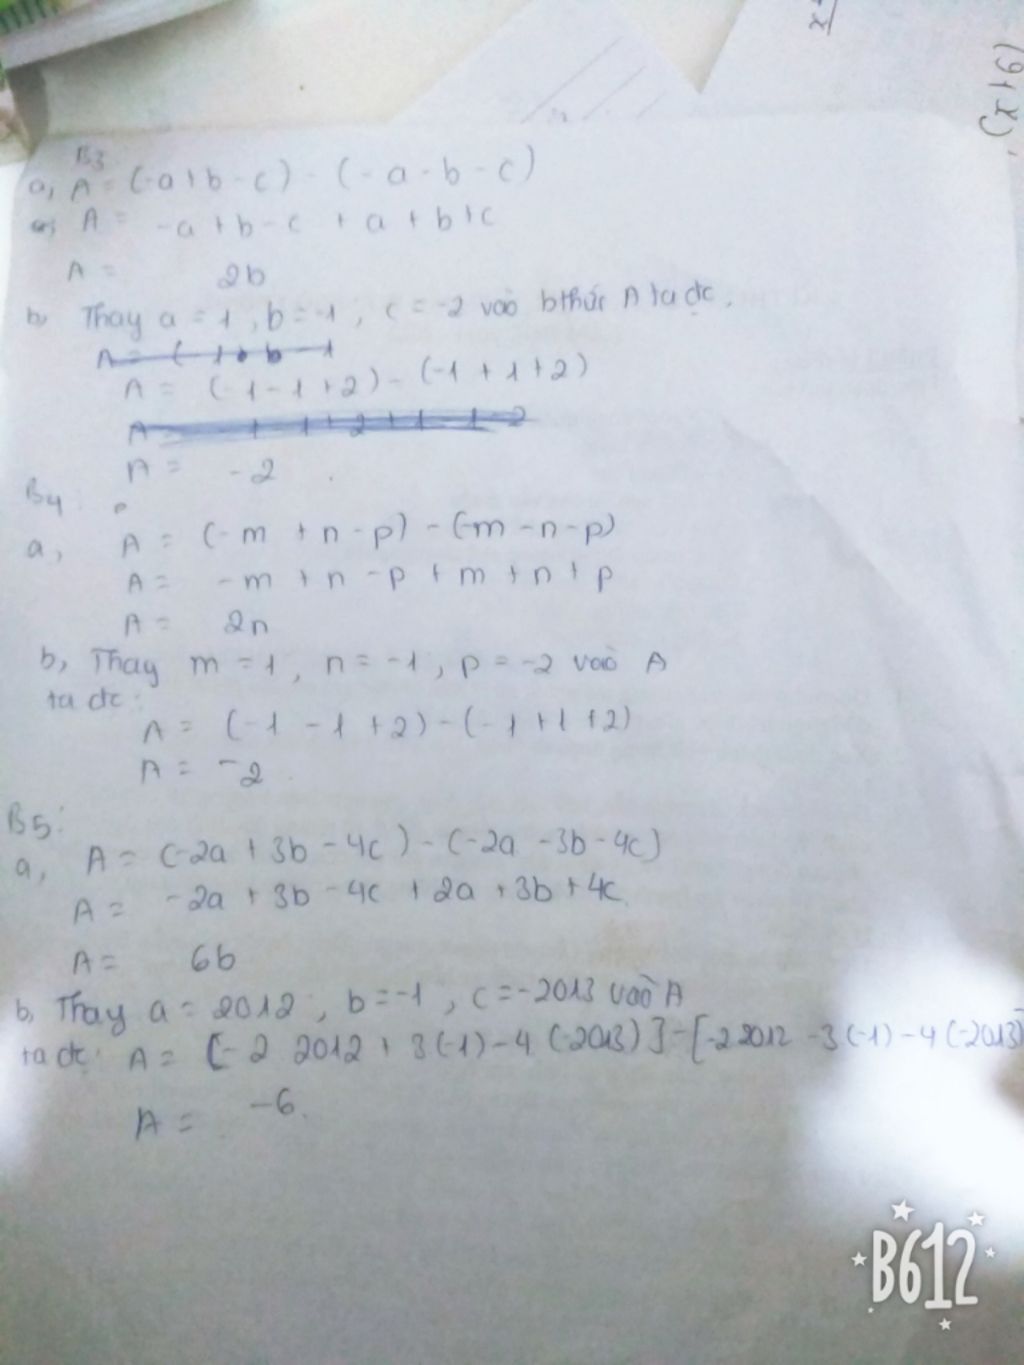 B3
a, A = (-a+b-c) - (-a-b-c)
A = -a+b-c +a+b+c
A = 2b
b, Thay a = 1, b = -1, c = -2 vào bthức A ta đc.
A = (-1-1+2) - (-1+1+2)
A = -2.
B4:
a, A = (-m + n - p) - (-m - n - p)
A = -m + n - p + m + n + p
A = 2n
b, Thay m = 1, n = -1, p = -2 vào A
ta đc:
A = (-1 - 1 + 2) - (-1 +1 +2)
A = -2.
B5:
a, A = (-2a + 3b - 4c) - (-2a - 3b - 4c)
A = -2a + 3b - 4c + 2a + 3b + 4c.
A = 6b
b, Thay a = 2012, b = -1, c = -2013 vào A
ta đc: A = [-2 2012 + 3(-1) - 4(-2013)] - [-2 2012 - 3(-1) - 4(-2013)]
A = -6.
(x+6)
B612